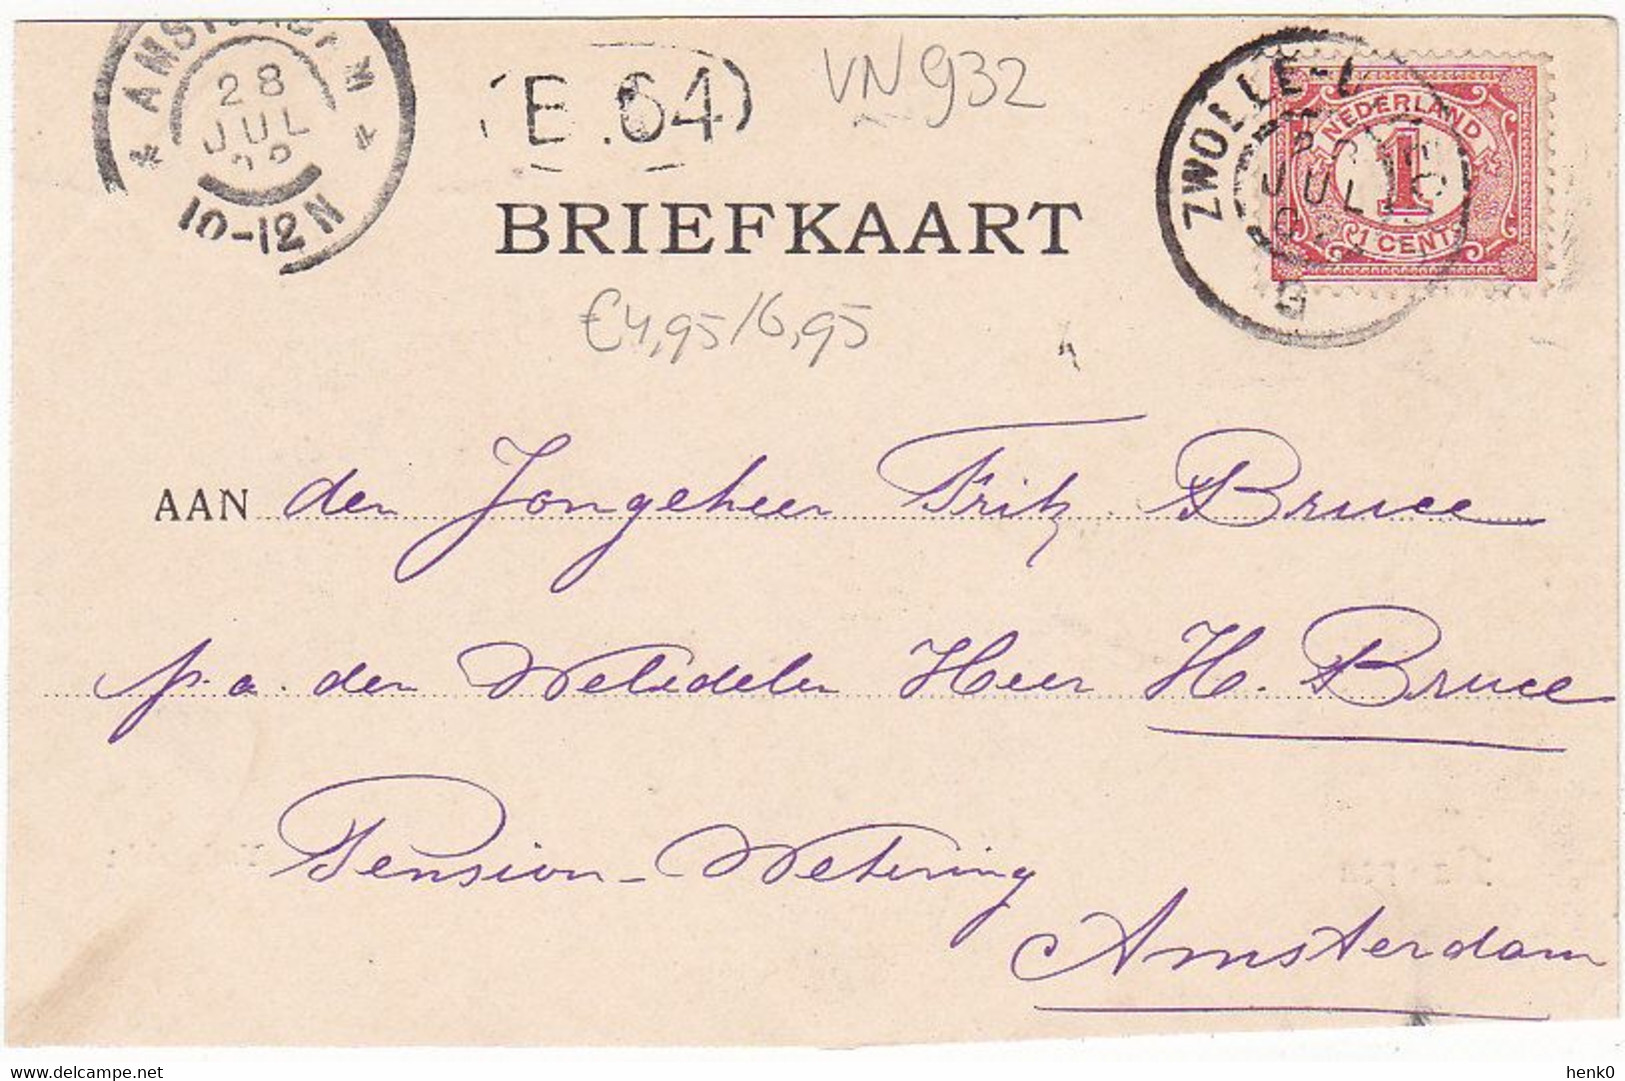 * AMSTERDAM *
28
JUL
10-12 N
E.64
VN 932
ZWOLLE
JUL
NEDERLAND
1
1 CENT
BRIEFKAART
€4,95/6,95
AAN den Jongeheer Fritz Bruce
p.a. den Weledelen Heer H. Bruce
Pension-Wetering
Amsterdam
henk0